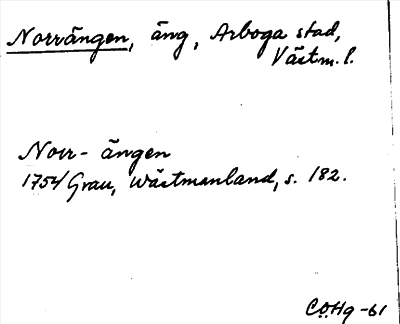 Norrängen, äng, Arboga stad,
Västm. l.
Norr-ängen
1754 Grau, Wästmanland, s. 182.
CÖHg -61